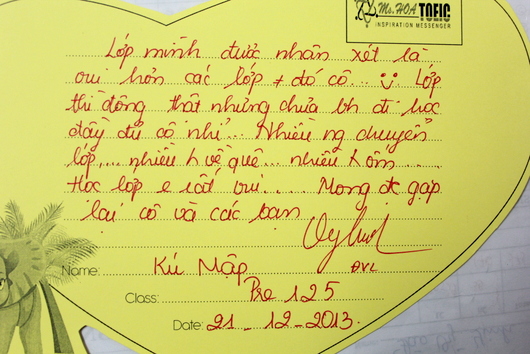 Ms. HOA TOEIC
INSPIRATION MESSENGER
Lớp mình được nhận xét là
vui hơn các lớp + đó cô... Lớp
thì đông thật nhưng chưa bh đi học
đầy đủ cô nhỉ... Nhiều ng chuyển
lớp,... nhiều h về quê... nhiều h ốm....
Học lớp e rất vui.... Mong đc gặp
lại cô và các bạn
Name: Kú Mập ĐVL
Class: Pre 125
Date: 21-12-2013.